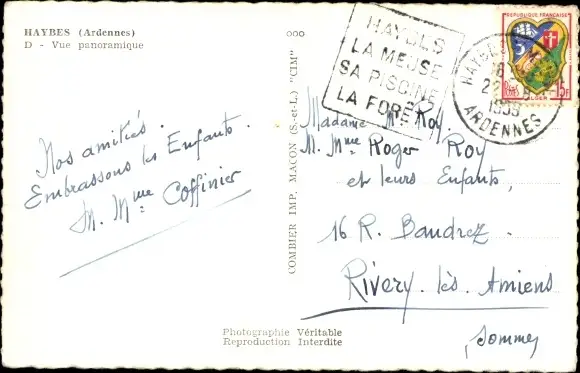 HAYBES (Ardennes)
D - Vue panoramique
Nos amitiés.
Embrassons les Enfants.
M. Mme Coffinier
COMBIER IMP. MACON (S.-et-L.) "CIM"
HAYBES
LA MEUSE
SA PISCINE
LA FORÊT
REPUBLIQUE FRANÇAISE
15F
ALGER
HAYBES
18
1959
ARDENNES
Madame Roy.
M. Mme Roger Roy
et leurs Enfants,
16 R. Baudrez.
Rivery-lès-Amiens
Somme
Photographie Véritable
Reproduction Interdite